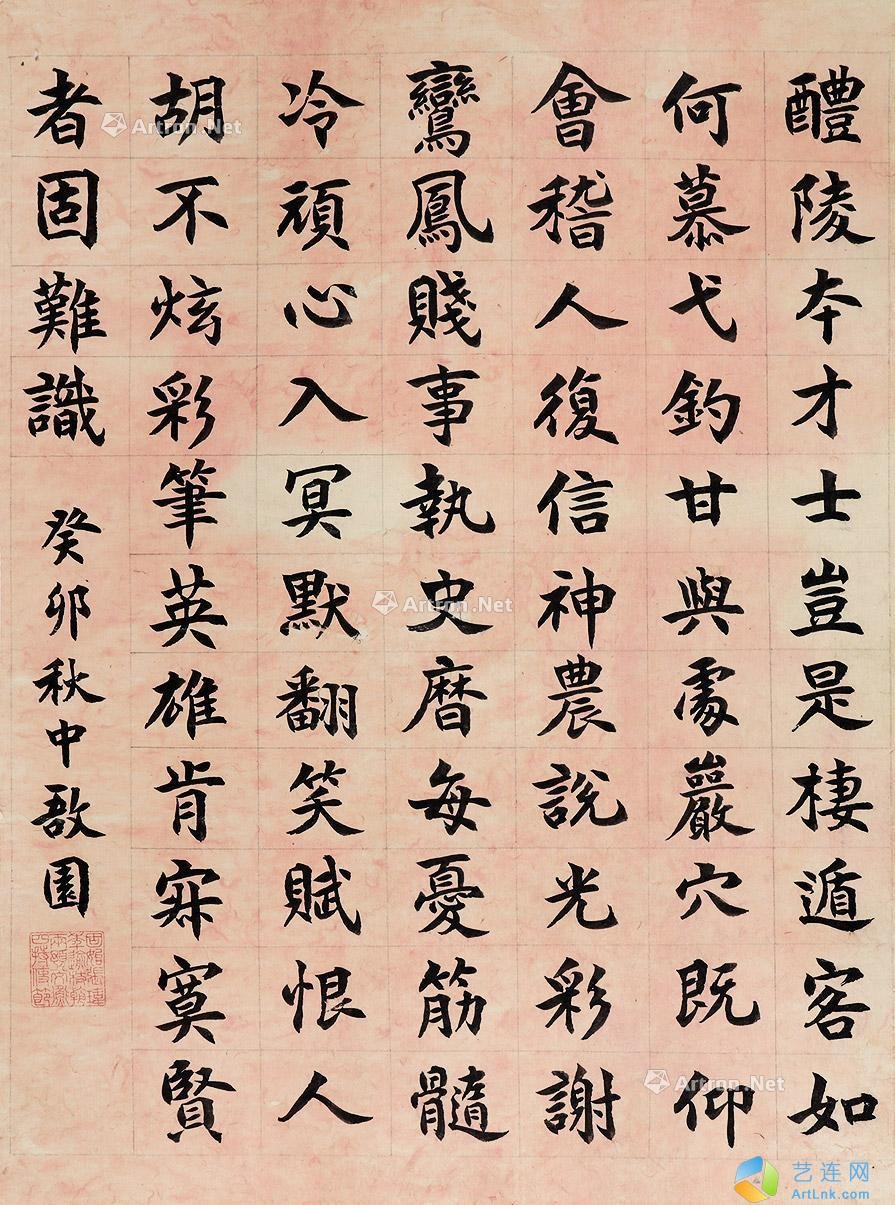 醴陵本才士豈是棲遁客如
何慕弋釣甘與處巖穴既仰
會稽人復信神農說光彩謝
鸞鳳賤事執史曆每憂筋髓
冷頑心入冥默翻笑賦恨人
胡不炫彩筆英雄肯寂寞賢
者固難識
癸卯秋中敔園
Artron.Net
Artron.Net
Artron.Net
艺连网
ArtLnk.com